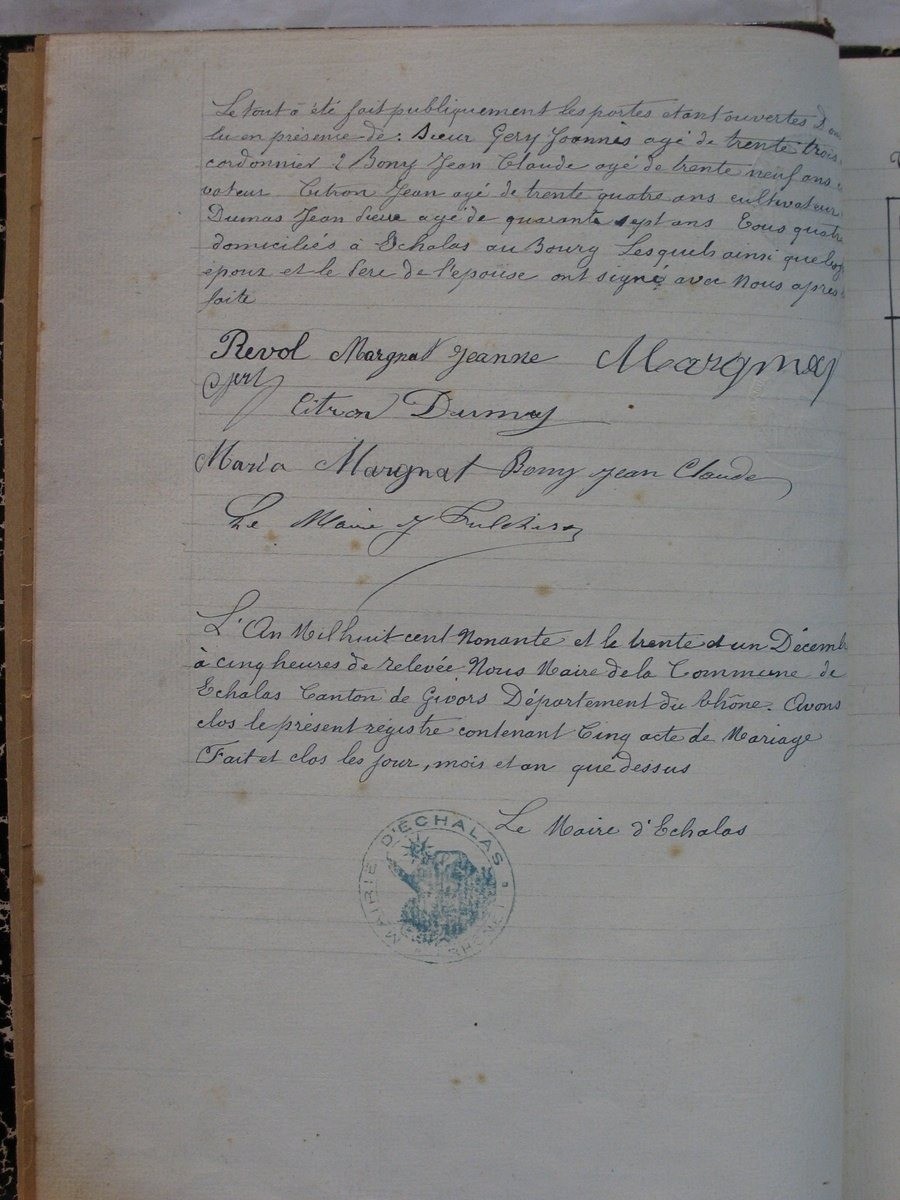 Le tout a été fait publiquement les portes étant ouvertes
lu en présence de : Sieur Gery Joannès agé de trente trois
cordonnier 2 Bony Jean Claude agé de trente neuf ans
vateur Citron Jean agé de trente quatre ans cultivateur
Dumas Jean agé de quarante sept ans Tous quatre
domiciliés à Echalas au Bourg Lesquels ainsi que
époux et le Père de l'epouse ont signé avec Nous après
faite
Revol Margnat Jeanne Margnat
Citron Dumas
Maria Margnat Bony Jean Claude
Le Maire J Fulchiron
L'An Mil huit cent Nonante et le trente et un Décemb
à cinq heures de relevée Nous Maire de la Commune de
Echalas Canton de Givors Département du Rhône. Avons
clos le présent régistre contenant Cinq acte de Mariage
Fait et clos les jour, mois et an que dessus
Le Maire d'Echalas
MAIRIE D'ÉCHALAS
RHÔNE